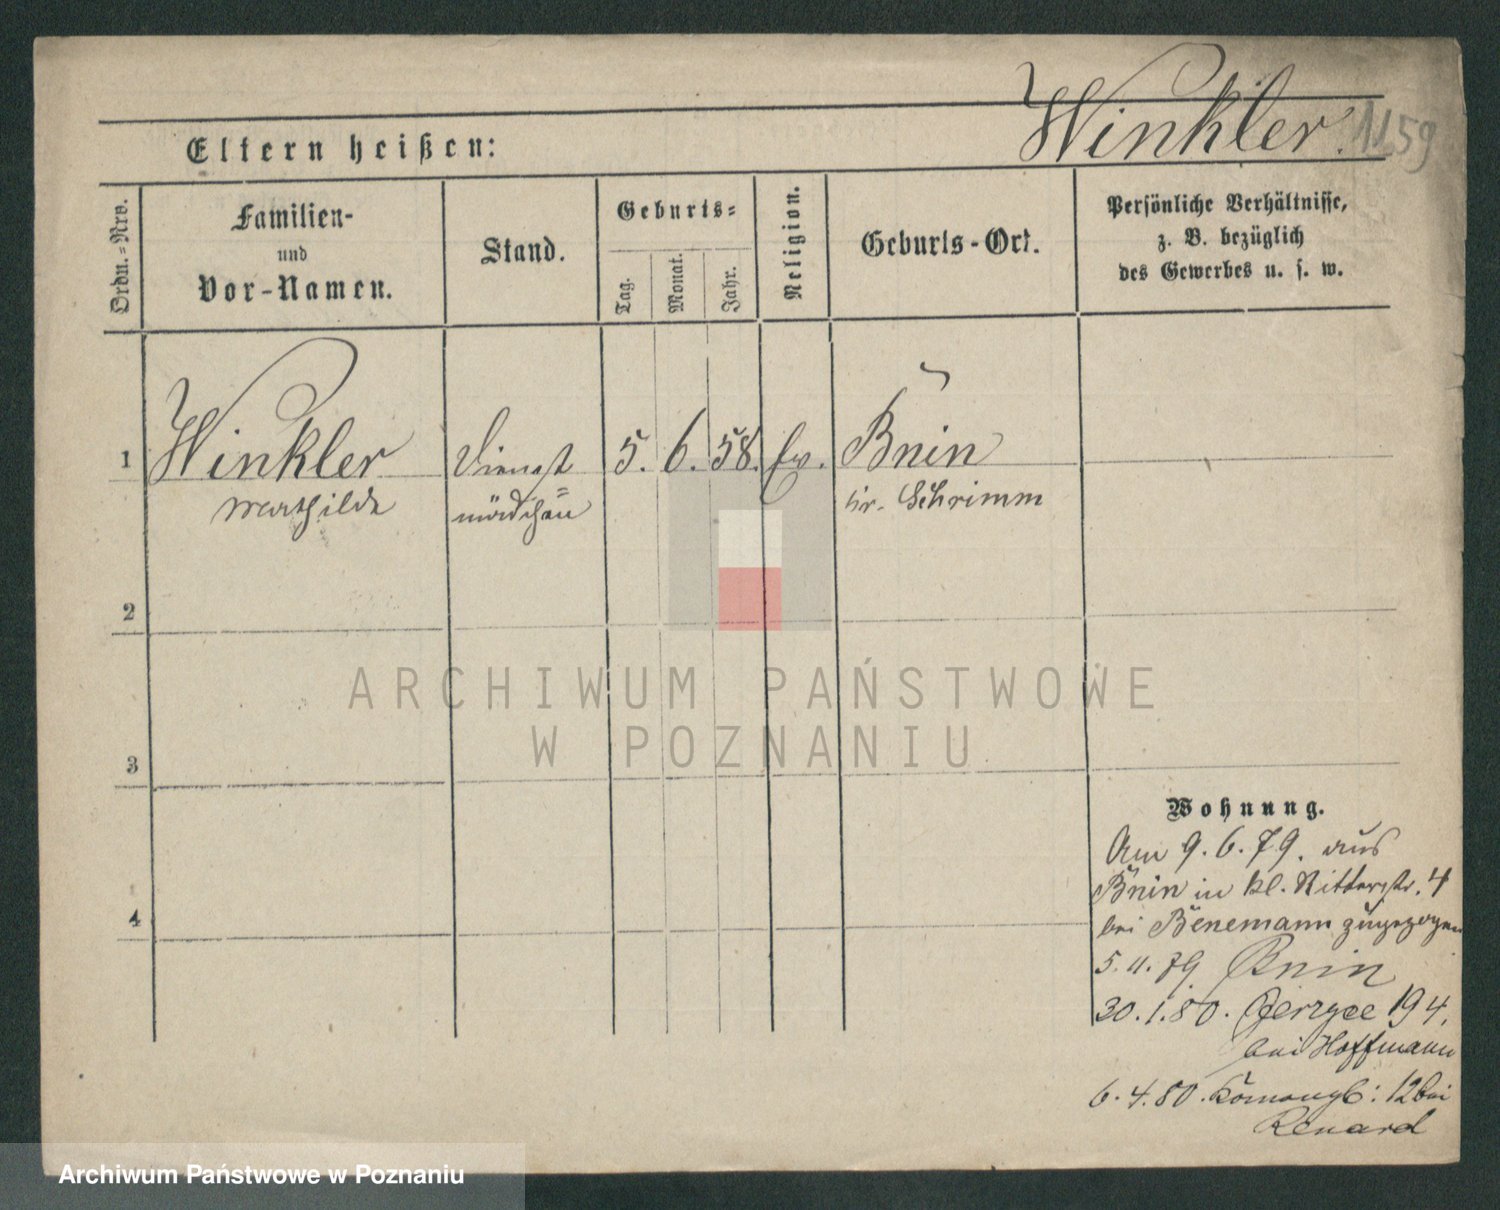 Winkler. 1159
Eltern heißen:
Ordn.-Nro.
Familien-
und
Vor-Namen.
Stand.
Geburts-
Tag.
Monat.
Jahr.
Religion.
Geburts-Ort.
Persönliche Verhältnisse,
z. B. bezüglich
des Gewerbes u. s. w.
1 Winkler Dienst 5. 6. 58. Ev. Bnin
Mathilde mädchen Kr. Schrimm
2
3
4
ARCHIWUM PAŃSTWOWE
W POZNANIU
Wohnung.
Am 9. 6. 79. aus
Bnin in kl. Ritterstr. 4
bei Benemann zugezogen
5. 11. 79 Bnin
30. 1. 80. Jerzyce 194.
bei Hoffmann
6. 4. 80. 12 bei
Renard
Archiwum Państwowe w Poznaniu